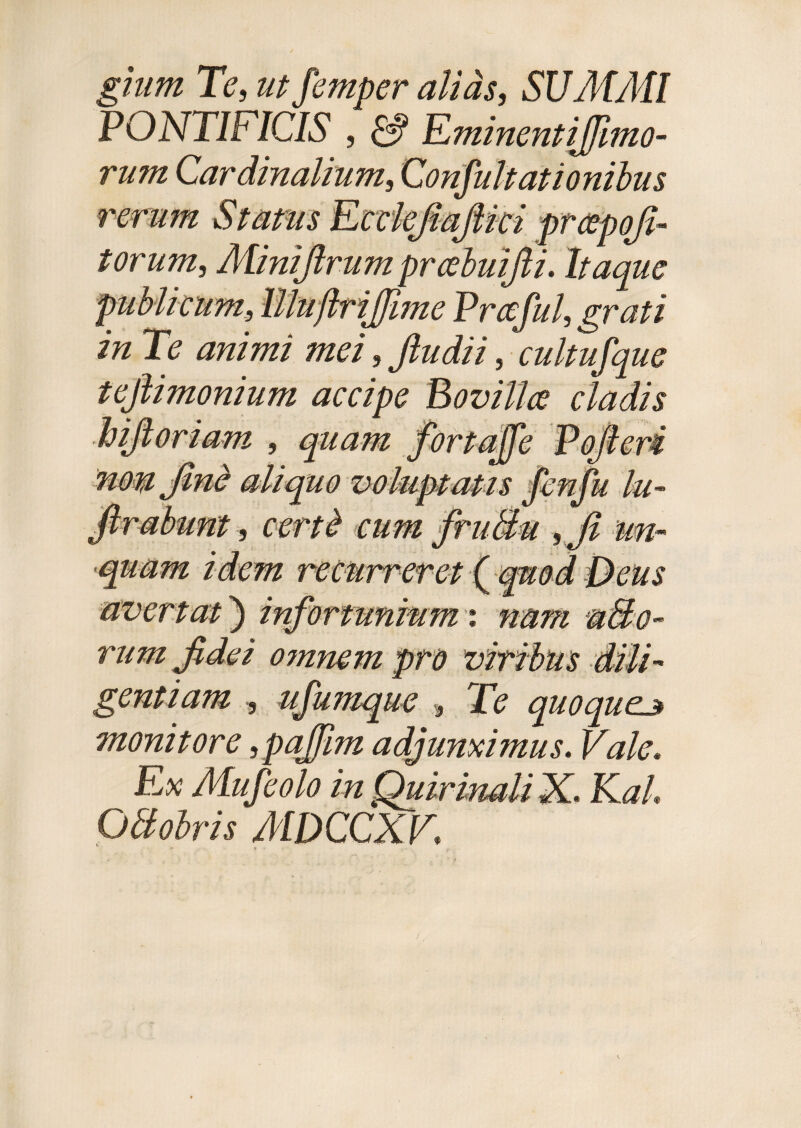 gium Te, ut ſemper aliàs, SUMMI
PONTIFICIS , & Eminentiſſimo-
rum Cardinalium, Conſultationibus
rerum Status Eccleſiaſtici præpoſi-
torum, Miniſtrum præbuiſti. Itaque
publicum, Illuſtriſſime Præſul, grati
in Te animi mei, ſtudii, cultuſque
teſtimonium accipe Bovillæ cladis
hiſtoriam , quam fortaſſe Poſteri
non ſinè aliquo voluptatis ſenſu lu-
ſtrabunt, certè cum fructu , ſi un-
quam idem recurreret ( quod Deus
avertat ) infortunium : nam acto-
rum fidei omnem pro viribus dili-
gentiam , uſumque , Te quoque
monitore , paſſim adjunximus. Vale.
Ex Muſeolo in Quirinali X. Kal.
Octobris MDCCXV.